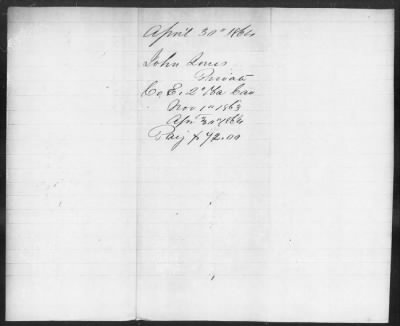 April 30" 1864
John Jones
Private
Co E. 2" Ka Cav
Nov 1" 1863
Apr 30" 1864
Pay $ 72.00